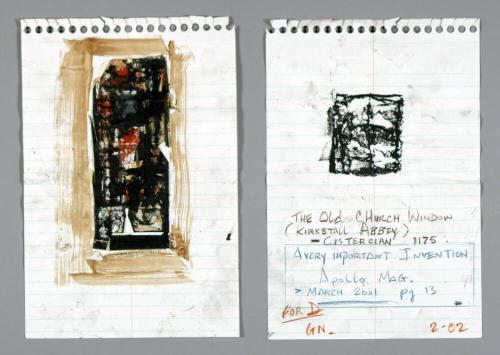 THE Old CHURCH WINDOW
(KIRKSTALL ABBEY)
- CISTERCIAN 1175.
A VERY IMPORTANT INVENTION
Apollo MAG.
> MARCH 2001 pg 13
FOR D
GN. 2-02